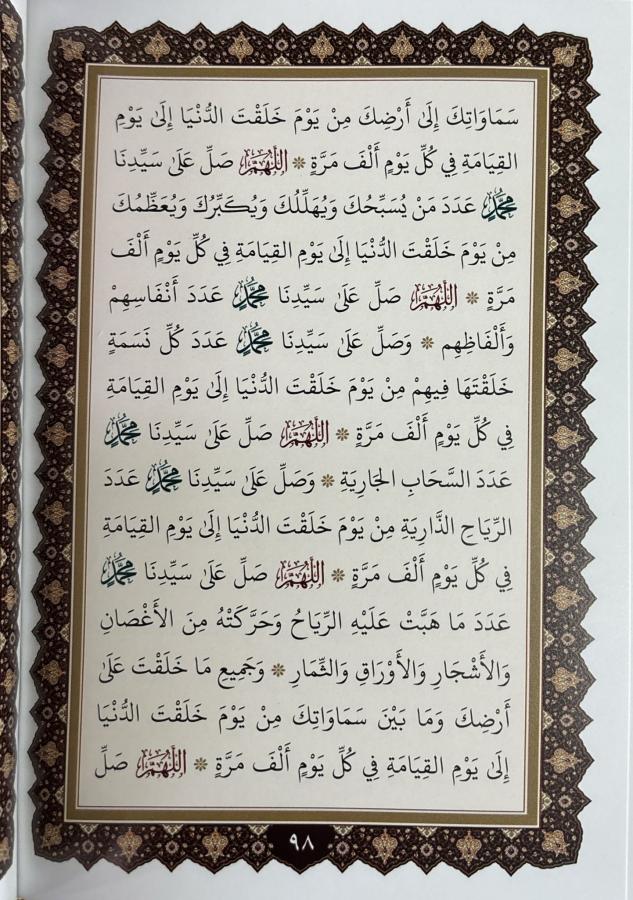 سَمَاوَاتِكَ إِلَىٰ أَرْضِكَ مِنْ يَوْمِ خَلَقْتَ الدُّنْيَا إِلَىٰ يَوْمِ
القِيَامَةِ فِي كُلِّ يَوْمٍ أَلْفَ مَرَّةٍ * اللَّهُمَّ صَلِّ عَلَىٰ سَيِّدِنَا
مُحَمَّدٍ عَدَدَ مَنْ يُسَبِّحُكَ وَيُهَلِّلُكَ وَيُكَبِّرُكَ وَيُعَظِّمُكَ
مِنْ يَوْمَ خَلَقْتَ الدُّنْيَا إِلَىٰ يَوْمِ القِيَامَةِ فِي كُلِّ يَوْمٍ أَلْفَ
مَرَّةٍ * اللَّهُمَّ صَلِّ عَلَىٰ سَيِّدِنَا مُحَمَّدٍ عَدَدَ أَنْفَاسِهِمْ
وَأَلْفَاظِهِم * وَصَلِّ عَلَىٰ سَيِّدِنَا مُحَمَّدٍ عَدَدَ كُلِّ نَسَمَةٍ
خَلَقْتَهَا فِيهِمْ مِنْ يَوْمَ خَلَقْتَ الدُّنْيَا إِلَىٰ يَوْمِ القِيَامَةِ
فِي كُلِّ يَوْمٍ أَلْفَ مَرَّةٍ * اللَّهُمَّ صَلِّ عَلَىٰ سَيِّدِنَا مُحَمَّدٍ
عَدَدَ السَّحَابِ الجَارِيَةِ * وَصَلِّ عَلَىٰ سَيِّدِنَا مُحَمَّدٍ عَدَدَ
الرِّيَاحِ الذَّارِيَةِ مِنْ يَوْمَ خَلَقْتَ الدُّنْيَا إِلَىٰ يَوْمِ القِيَامَةِ
فِي كُلِّ يَوْمٍ أَلْفَ مَرَّةٍ * اللَّهُمَّ صَلِّ عَلَىٰ سَيِّدِنَا مُحَمَّدٍ
عَدَدَ مَا هَبَّتْ عَلَيْهِ الرِّيَاحُ وَحَرَّكَتْهُ مِنَ الأَغْصَانِ
وَالأَشْجَارِ وَالأَوْرَاقِ وَالثِّمَارِ * وَجَمِيعِ مَا خَلَقْتَ عَلَىٰ
أَرْضِكَ وَمَا بَيْنَ سَمَاوَاتِكَ مِنْ يَوْمَ خَلَقْتَ الدُّنْيَا
إِلَىٰ يَوْمِ القِيَامَةِ فِي كُلِّ يَوْمٍ أَلْفَ مَرَّةٍ * اللَّهُمَّ صَلِّ
٩٨